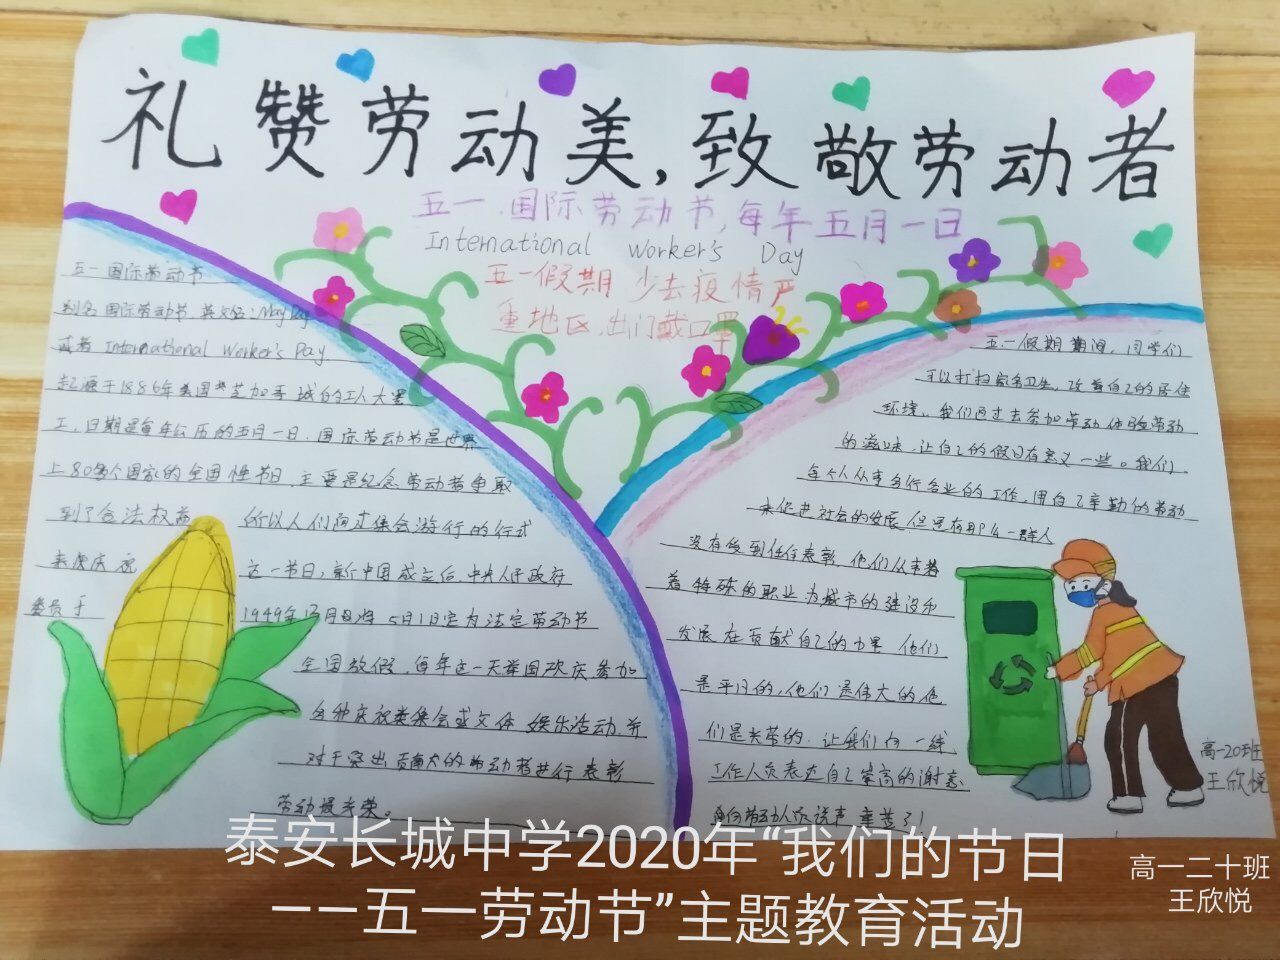 礼赞劳动美,致敬劳动者
五一国际劳动节,每年五月一日
International Worker's Day
五一假期 少去疫情严
重地区,出门戴口罩
五一国际劳动节
别名国际劳动节,英文名:May Day
或者 International Worker's Day
起源于1886年美国芝加哥城的工人大罢
工,日期是每年公历的五月一日.国际劳动节是世界
上80多个国家的全国性节日.主要是纪念劳动者争取
到了合法权益 所以人们通过集会游行的行式
来度庆祝 这一节日,新中国成立后,中央人民政府
委员于 1949年12月 将5月1日定为法定劳动节
全国放假.每年这一天举国欢庆.参加
各种庆祝类集会或文体娱乐活动.并
对于突出贡献的劳动者进行表彰
劳动最光荣。
五一假期期间,同学们
可以打扫家务卫生,改善自己的居住
环境.我们通过去参加劳动体验劳动
的滋味.让自己的假日有意义一些。我们
每个人从事各行各业的工作,用自己辛勤的劳动
来促进社会的发展.但是有那么一群人
没有受到任何表彰.他们从事着
着特殊的职业为城市的建设和
发展在贡献自己的力量 他们
是平凡的,他们是伟大的他
们是光荣的.让我们向一线
工作人员表达自己崇高的谢意
高一20班
王欣悦
泰安长城中学2020年“我们的节日
——五一劳动节”主题教育活动
高一二十班
王欣悦